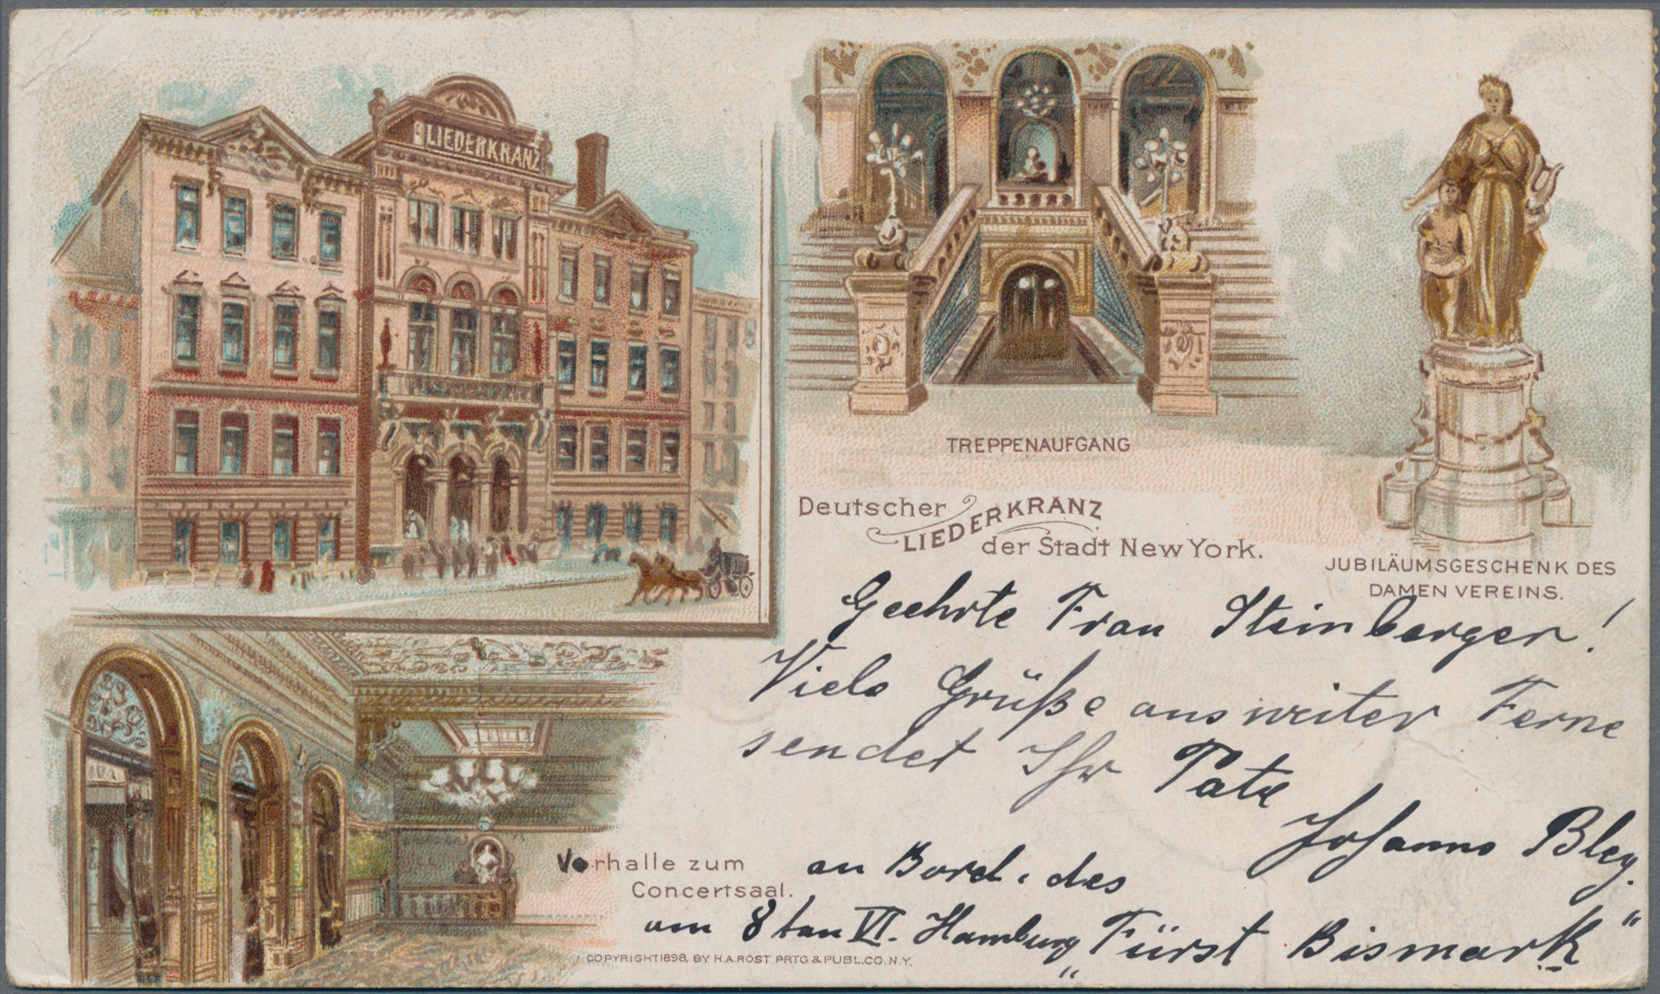 LIEDERKRANZ
TREPPENAUFGANG
Deutscher
LIEDERKRANZ
der Stadt New York.
JUBILÄUMSGESCHENK DES
DAMEN VEREINS.
Geehrte Frau Steinberger!
Viele Grüße aus weiter Ferne
sendet Ihr Pate
Johanns Bley.
Vorhalle zum
Concertsaal.
an Bord. des
am 8ten VI. Hamburg „Fürst Bismark“
COPYRIGHT 1898, BY H.A. ROST PRTG. & PUBL. CO. N.Y.